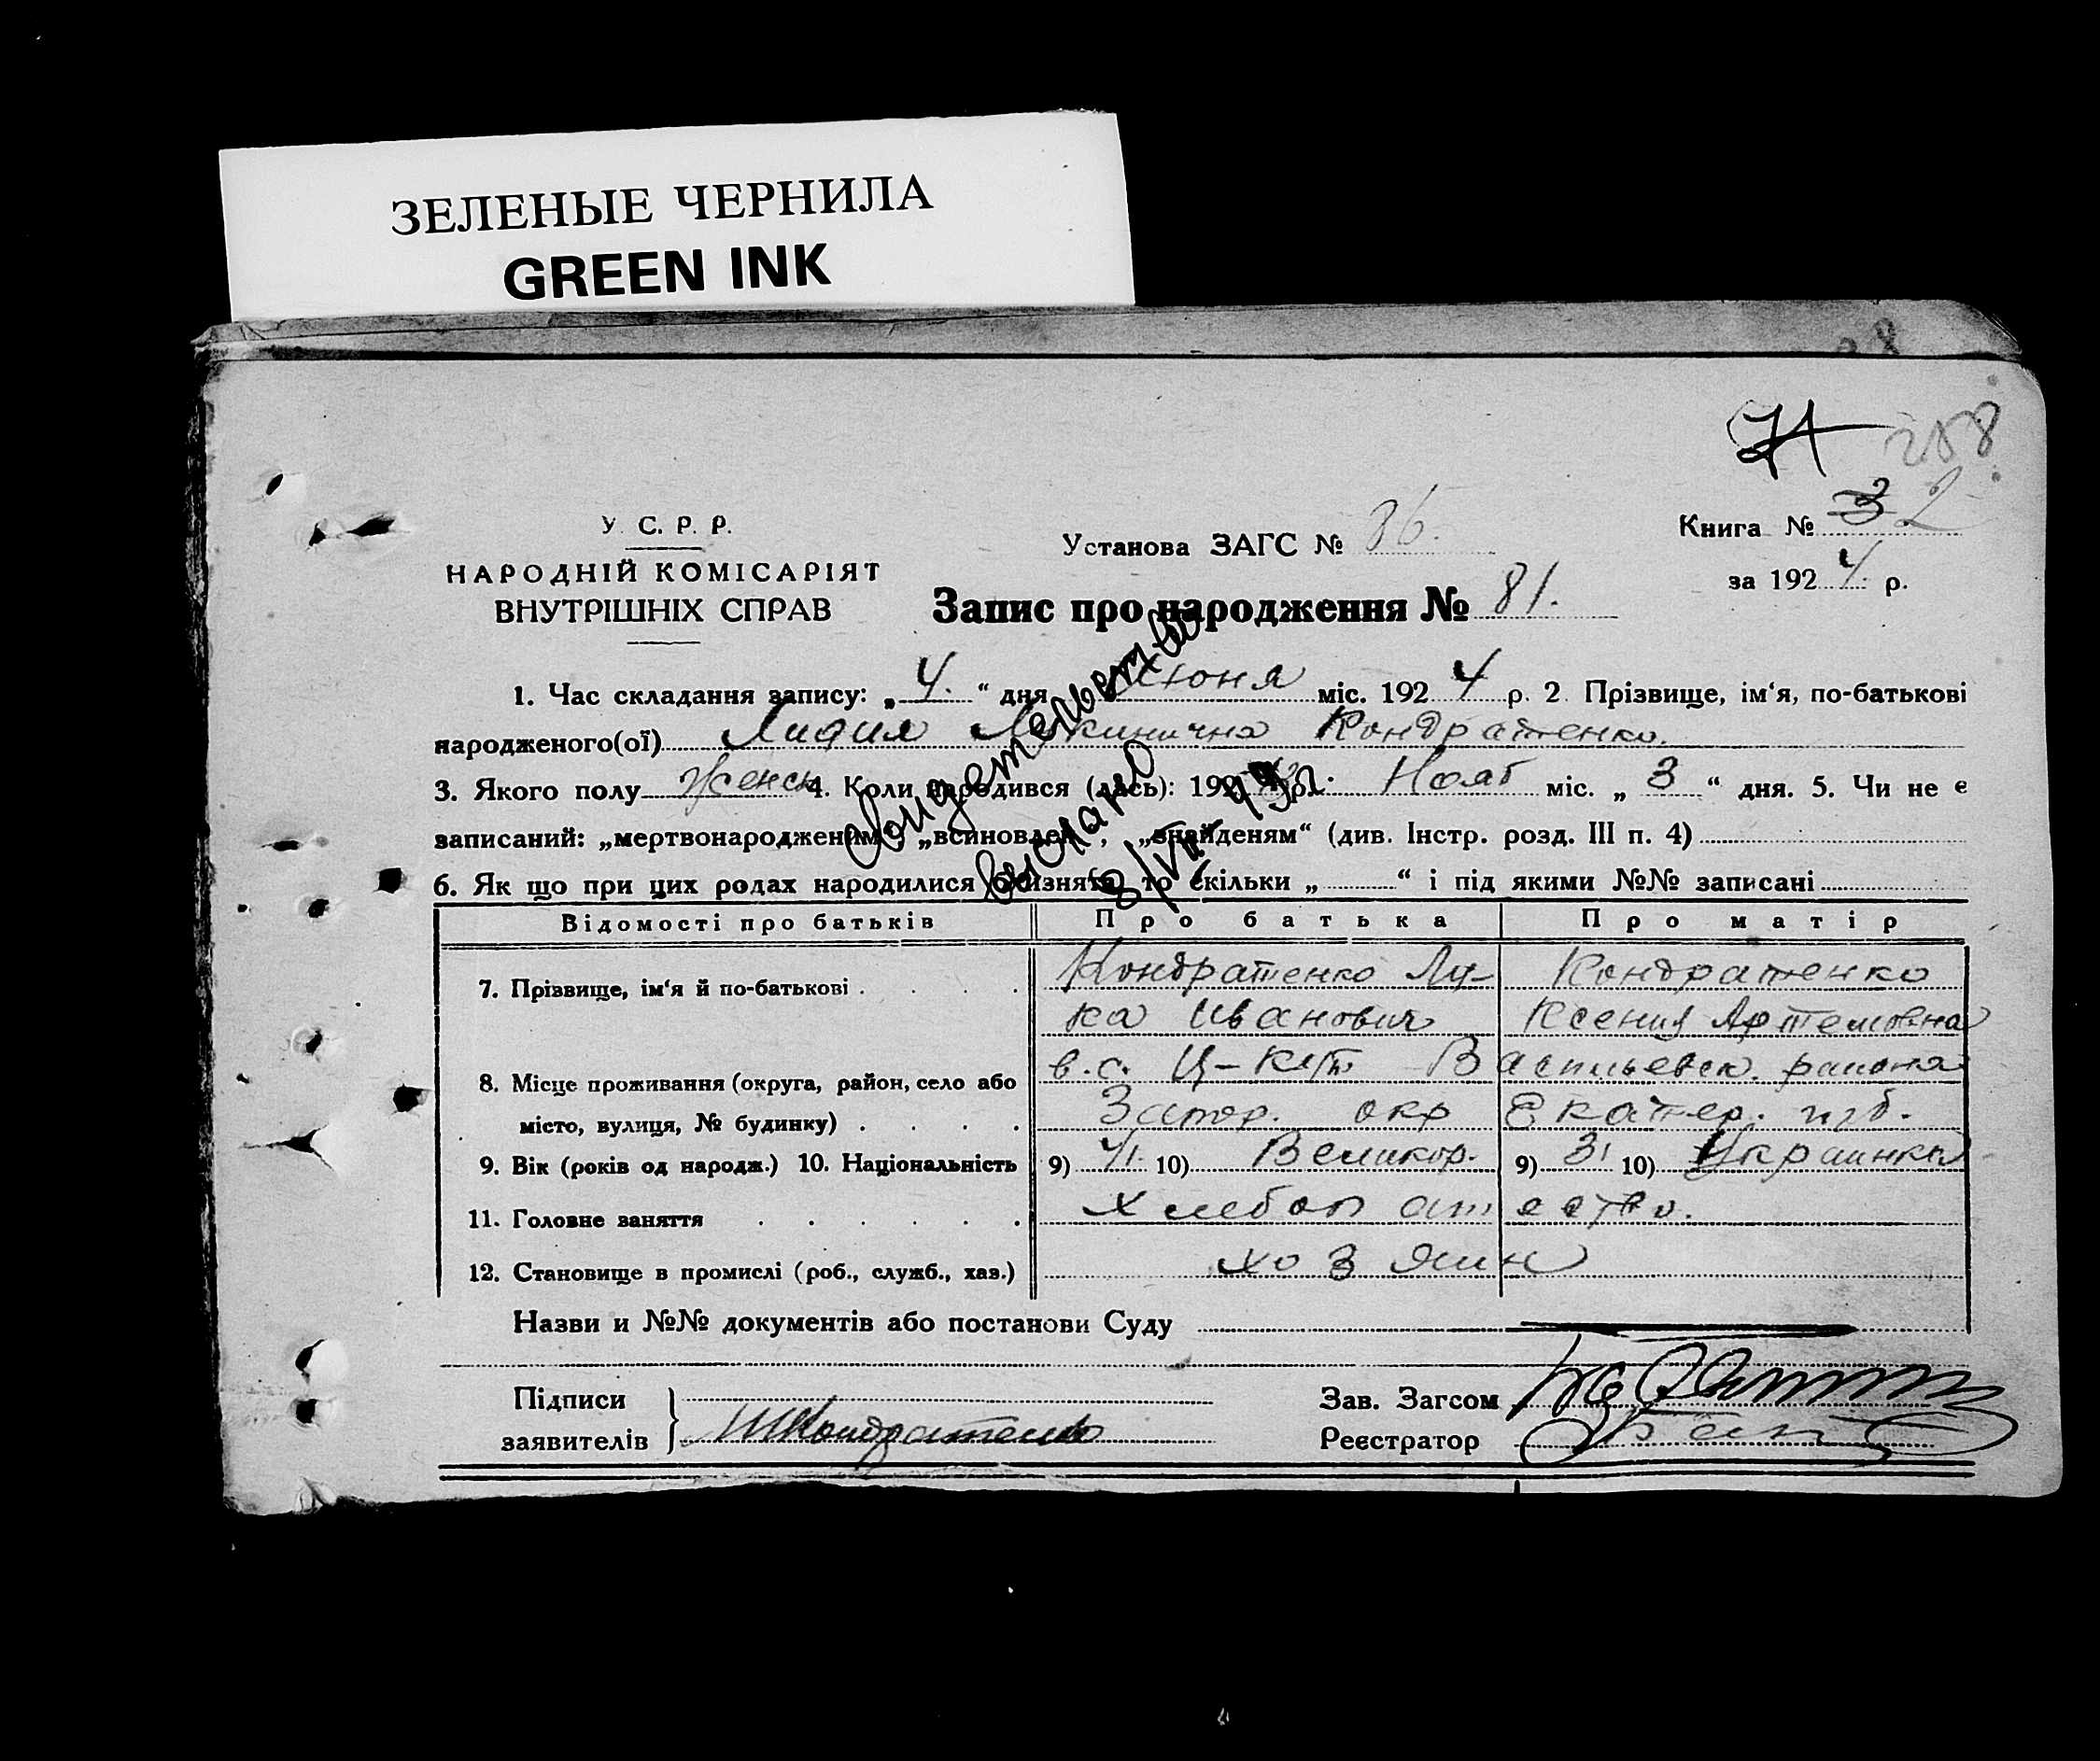 ЗЕЛЕНЫЕ ЧЕРНИЛА
GREEN INK
71 258
У. С. Р. Р.
НАРОДНІЙ КОМІСАРІЯТ
ВНУТРІШНІХ СПРАВ
Установа ЗАГС № 36.
Книга № 3 2
за 1924 р.
Запис про народження № 81.
1. Час складання запису: „4.“ дня Июня міс. 1924 р. 2. Прізвище, ім‘я, по-батькові
народженого(ої) Лидия Лукинична Кондратенко.
3. Якого полу Женск 4. Коли народився (лась): 192 р. Нояб міс. „3“ дня. 5. Чи не є
записаний: „мертвонародженим“, „всиновлен“, „знайденям“ (див. Інстр. розд. III п. 4)
6. Як що при цих родах народилися близнята, то скільки „ “ і під якими №№ записані
Свидетельство
выслано
Відомості про батьків Про батька Про матір
7. Прізвище, ім‘я й по-батькові Кондратенко Лу- Кондратенко
ка Иванович Ксения Артемовна
8. Місце проживання (округа, район, село або в. с. Ц-Кут Васильевск. района
місто, вулиця, № будинку) Запор. окр Екатер. губ.
9. Вік (років од народж.) 10. Національність 9) 41. 10) Великор. 9) 31 10) Украинка
11. Головне заняття хлебопашество.
12. Становище в промислі (роб., служб., хаз.) хозяин
Назви и №№ документів або постанови Суду
Підписи
заявителів Кондратенко
Зав. Загсом
Реєстратор